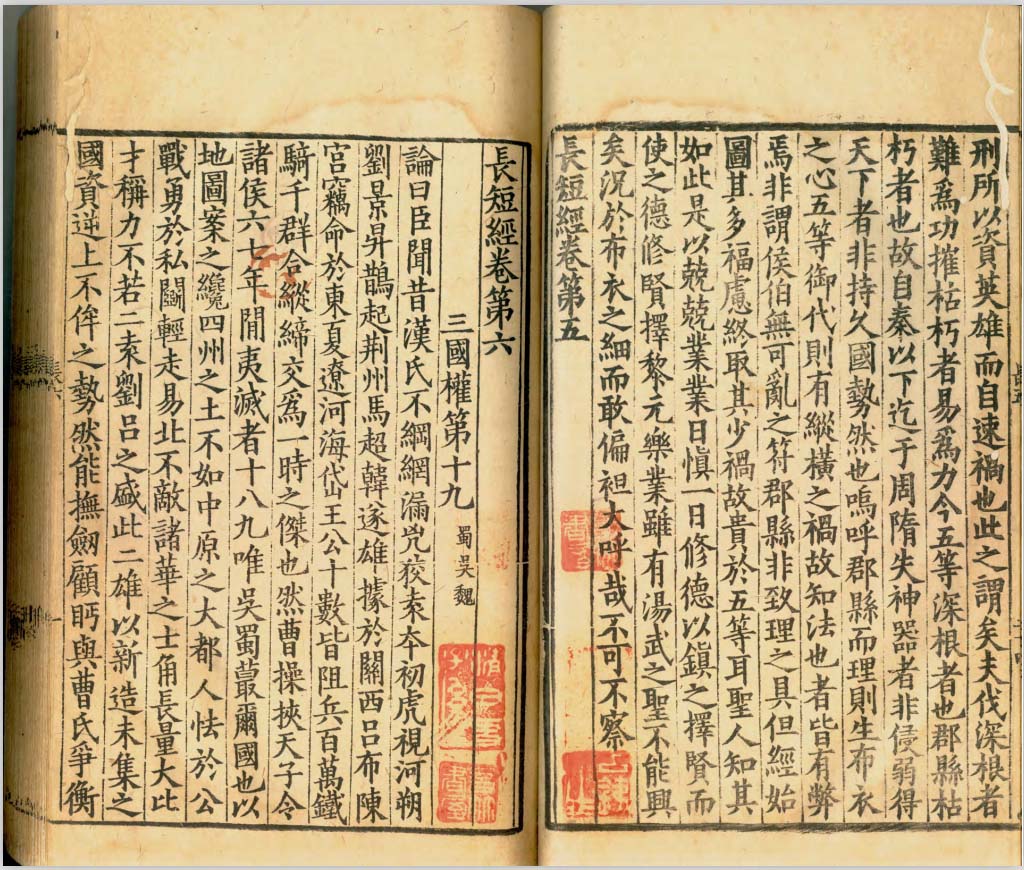 刑所以資英雄而自速禍也此之謂矣夫伐深根者
難爲功摧枯朽者易爲力今五等深根者也郡縣枯
朽者也故自秦以下迄于周隋失神器者非侵弱得
天下者非持久國勢然也嗚呼郡縣而理則生布衣
之心五等御代則有縱橫之禍故知法也者皆有弊
焉非謂侯伯無可亂之符郡縣非致理之具但經始
圖其多福慮終取其少禍故貴於五等耳聖人知其
如此是以兢兢業業日慎一日修德以鎮之擇賢而
使之德修賢擇黎元樂業雖有湯武之聖不能興
矣況於布衣之細而敢偏袒大呼哉不可不察
長短經卷第五
長短經卷第六
三國權第十九 蜀吳魏
論曰臣聞昔漢氏不綱網漏兇狡袁本初虎視河朔
劉景昇鵲起荆州馬超韓遂雄據於關西吕布陳
宮竊命於東夏遼河海岱王公十數皆阻兵百萬鐵
騎千群合縱締交爲一時之傑也然曹操挾天子令
諸侯六七年閒夷滅者十八九唯吳蜀蕞爾國也以
地圖案之纔四州之土不如中原之大都人怯於公
戰勇於私鬭輕走易北不敵諸華之士角長量大比
才稱力不若二袁劉吕之盛此二雄以新造未集之
國資逆上不侔之勢然能撫劒顧眄與曹氏爭衡